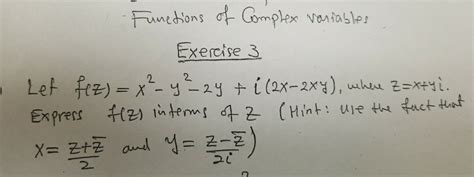 Functions of Complex variables
Exercise 3
Let f(z) = x² - y² - 2y + i(2x - 2xy), where z = x + yi.
Express f(z) in terms of z (Hint: Use the fact that
x = (z + z̅)/2 and y = (z - z̅)/2i)